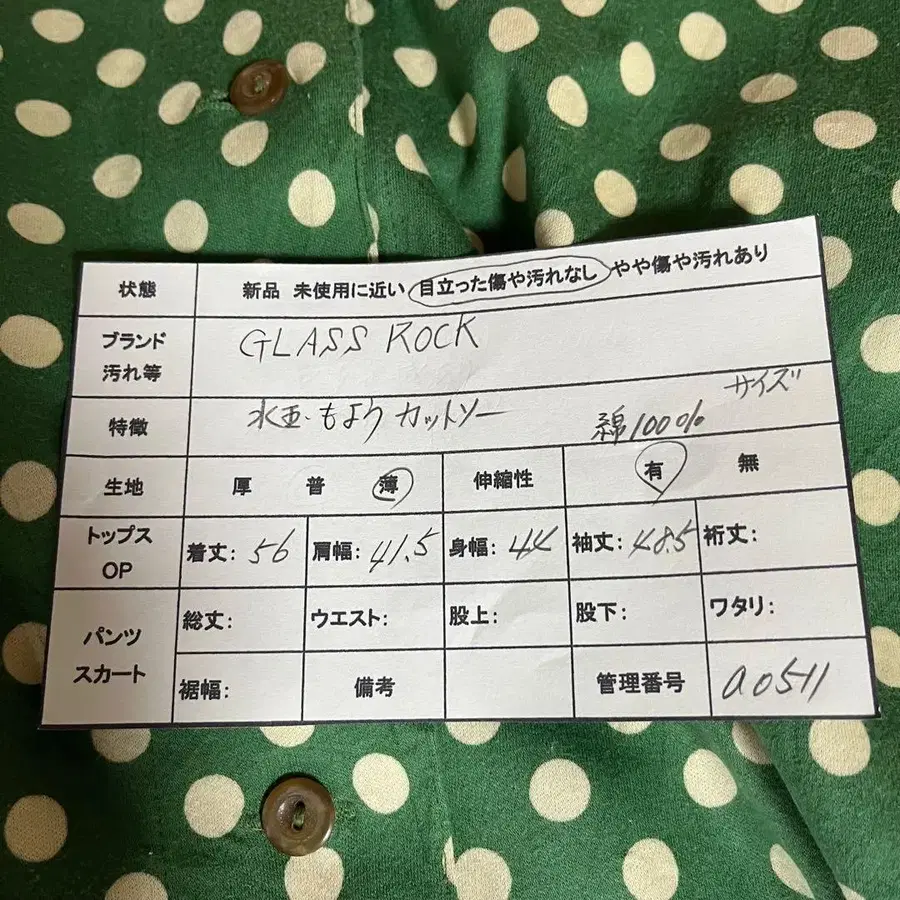 状態 新品 未使用に近い 目立った傷や汚れなし やや傷や汚れあり
ブランド 汚れ等 GLASS ROCK
サイズ
特徴 水玉もよう カットソー 綿100%
生地 厚 普 薄 伸縮性 有 無
トップス OP 着丈: 56 肩幅: 41.5 身幅: 44 袖丈: 48.5 裄丈:
パンツ スカート 総丈: ウエスト: 股上: 股下: ワタリ:
裾幅: 備考 管理番号 a0511